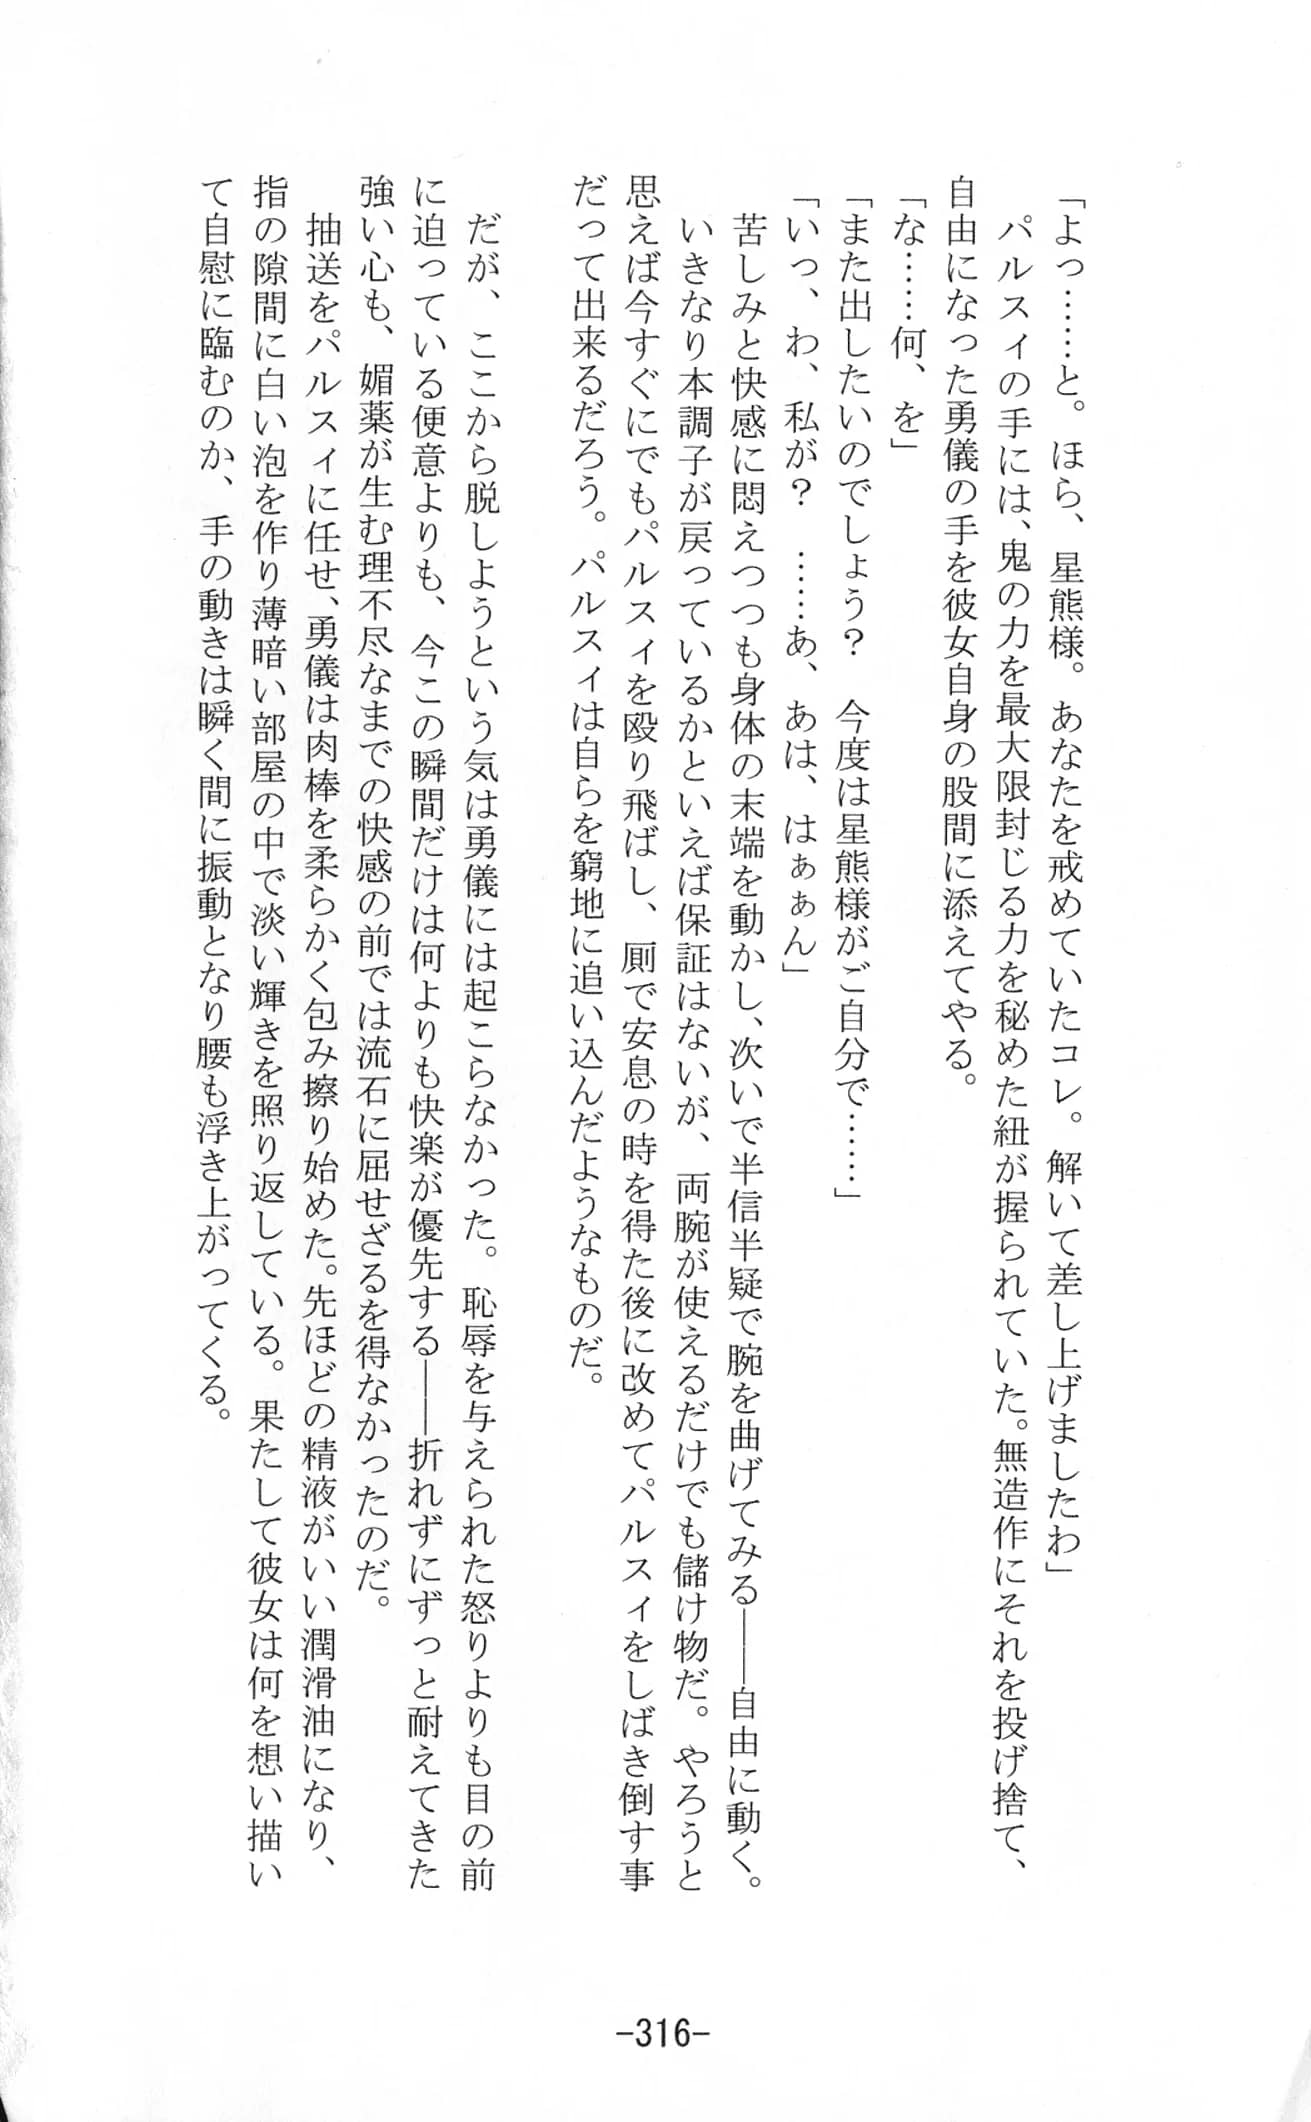 「よっ……と。ほら、星熊様。あなたを戒めていたコレ。解いて差し上げましたわ」
　パルスィの手には、鬼の力を最大限封じる力を秘めた紐が握られていた。無造作にそれを投げ捨て、
自由になった勇儀の手を彼女自身の股間に添えてやる。
「な……何、を」
「また出したいのでしょう？　今度は星熊様がご自分で……」
「いっ、わ、私が？　……あ、あは、はぁぁん」
　苦しみと快感に悶えつつも身体の末端を動かし、次いで半信半疑で腕を曲げてみる――自由に動く。
　いきなり本調子が戻っているかといえば保証はないが、両腕が使えるだけでも儲け物だ。やろうと
思えば今すぐにでもパルスィを殴り飛ばし、厠で安息の時を得た後に改めてパルスィをしばき倒す事
だって出来るだろう。パルスィは自らを窮地に追い込んだようなものだ。
　だが、ここから脱しようという気は勇儀には起こらなかった。恥辱を与えられた怒りよりも目の前
に迫っている便意よりも、今この瞬間だけは何よりも快楽が優先する――折れずにずっと耐えてきた
強い心も、媚薬が生む理不尽なまでの快感の前では流石に屈せざるを得なかったのだ。
　抽送をパルスィに任せ、勇儀は肉棒を柔らかく包み擦り始めた。先ほどの精液がいい潤滑油になり、
指の隙間に白い泡を作り薄暗い部屋の中で淡い輝きを照り返している。果たして彼女は何を想い描い
て自慰に臨むのか、手の動きは瞬く間に振動となり腰も浮き上がってくる。
-316-